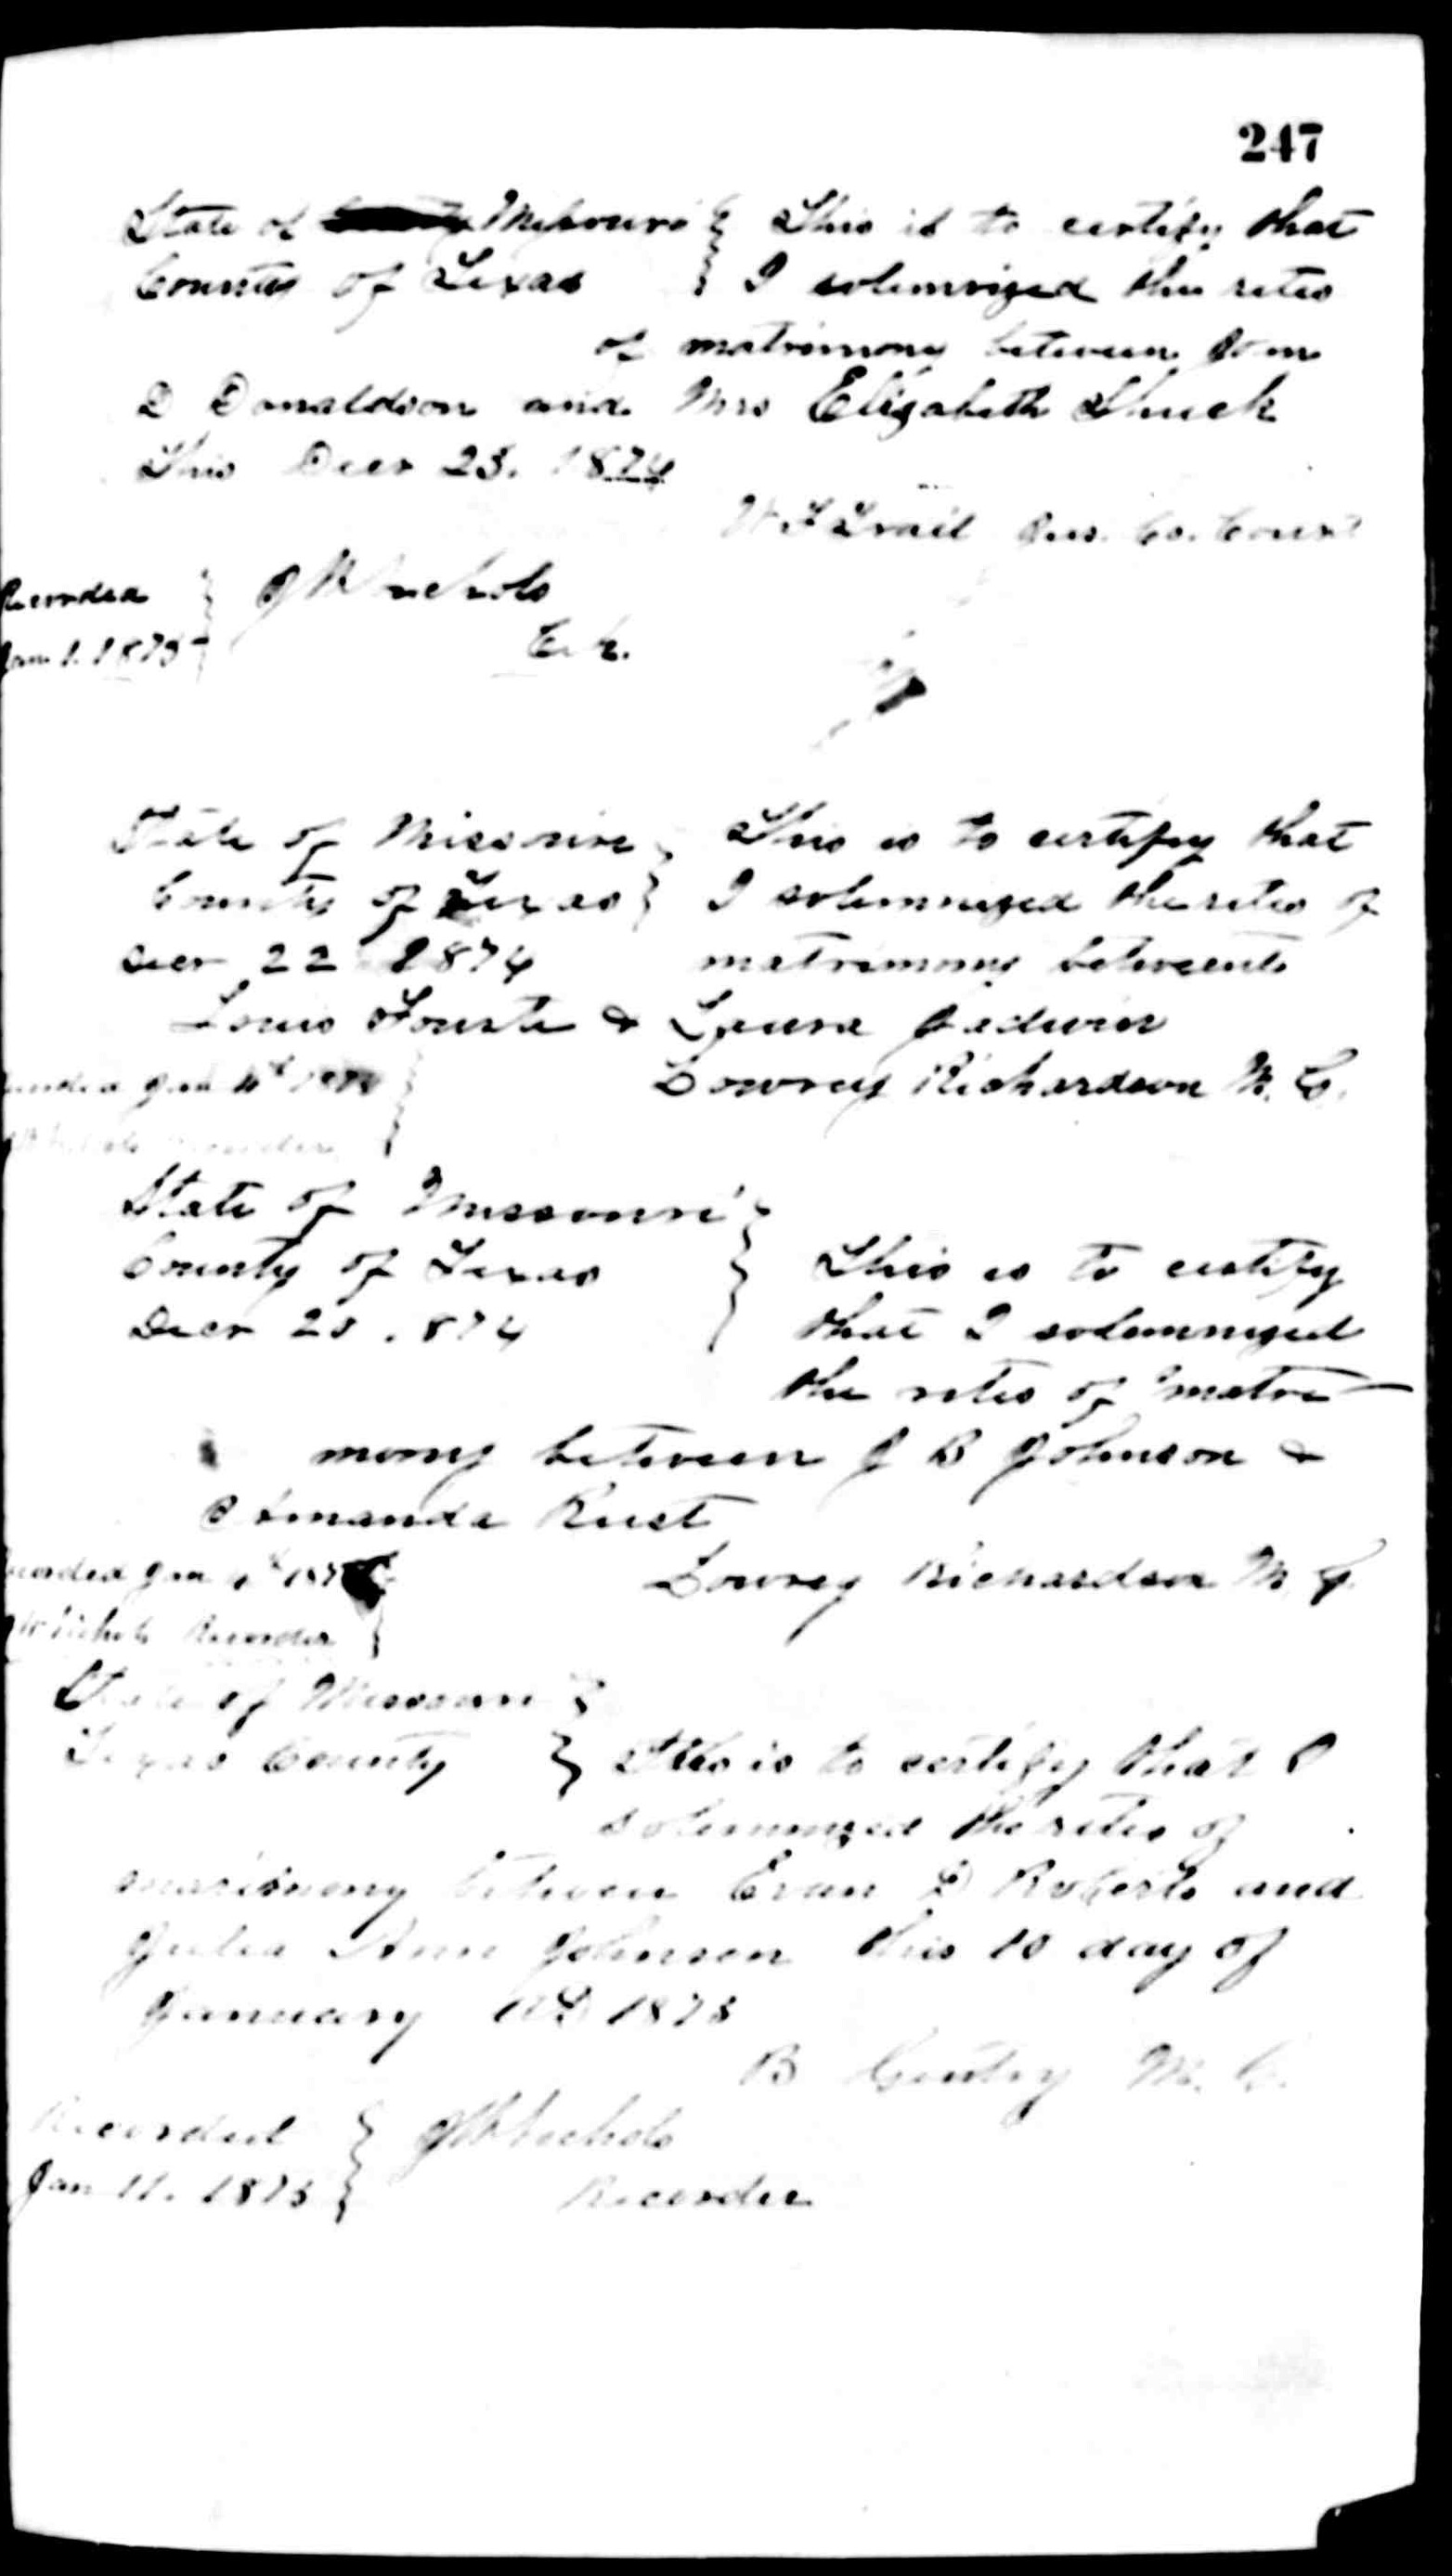 247
State of Missouri } This is to certify that
County of Texas } I solemnized the rites
of matrimony between
D Donaldson and Mrs Elizabeth Shuck
This Decr 25. 1874
Trail Co. Court
Recorded } J W Nichols
Jan 1. 1875 }
State of Missouri } This is to certify that
County of Texas } I solemnized the rites of
Decr 22 1874 matrimony between
Louis & Laura
Jan Lowrey Richardson M. G.
Recorder
State of Missouri }
County of Texas } This is to certify
Decr 874 that I solemnized
the rites of matri-
mony between J B Johnson &
Amanda Rust
Recorded Jan Lowrey Richardson M. G.
Nichols Recorder }
State of Missouri }
Texas County } This is to certify that I
solemnized the rites of
between Evan D Roberts and
Julia Ann Johnson this 10 day of
January AD 1875
B Gentry M. G.
Recorded } J W Nichols
Jan 11. 1875 } Recorder